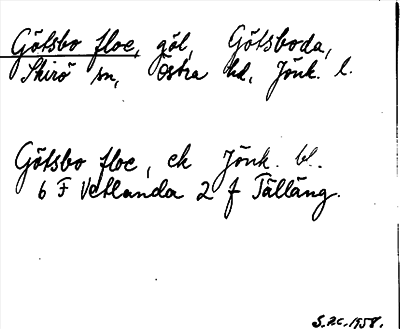 Götsbo floe, göl, Götsboda,
Skirö sn, Östra hd, Jönk. l.
Götsbo floe, ek Jönk. bl.
6 F Vetlanda 2 f Tälläng.
S.Z.C. 1958.